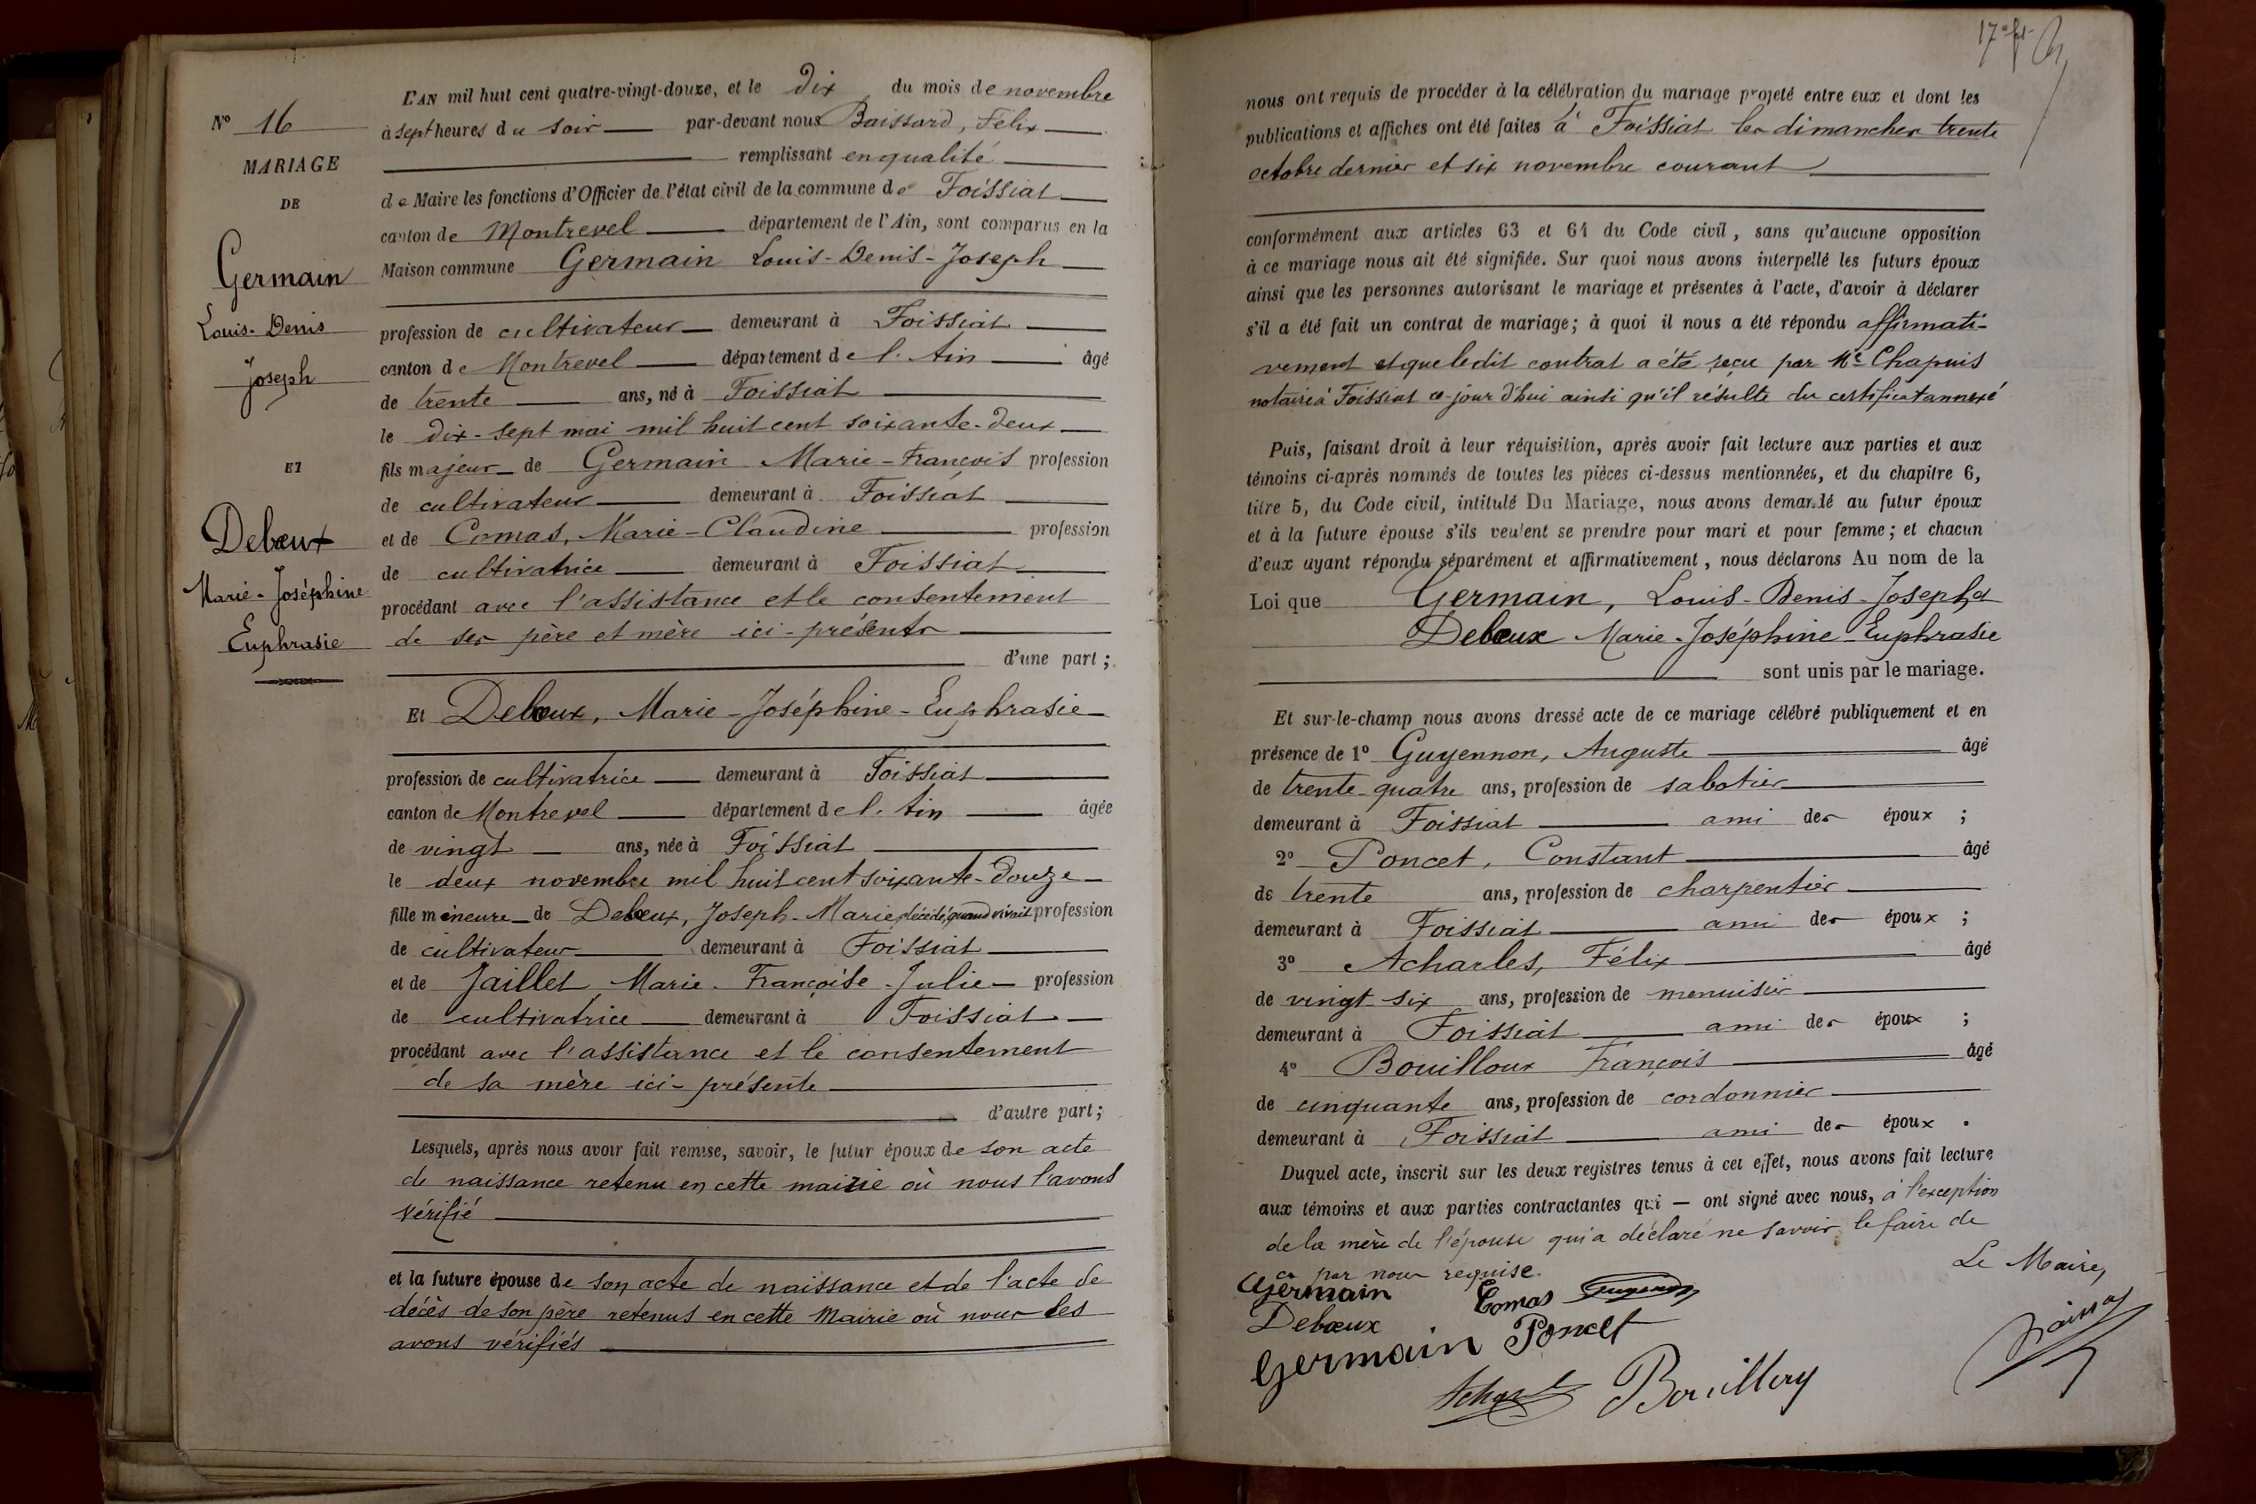 L'AN mil huit cent quatre-vingt-douze, et le dix du mois de novembre
N° 16
à sept heures du soir par-devant nous Baissard, Félix
MARIAGE
remplissant en qualité
DE
de Maire les fonctions d'Officier de l'état civil de la commune de Foissiat
canton de Montrevel département de l'Ain, sont comparus en la
Germain
Maison commune Germain Louis-Denis-Joseph
Louis-Denis
profession de cultivateur demeurant à Foissiat
Joseph
canton de Montrevel département de l'Ain âgé
de trente ans, né à Foissiat
le dix-sept mai mil huit cent soixante-deux
ET
fils majeur de Germain Marie-François profession
de cultivateur demeurant à Foissiat
Debœux
et de Comas, Marie-Claudine profession
de cultivatrice demeurant à Foissiat
Marie-Joséphine
procédant avec l'assistance et le consentement
Euphrasie
de ses père et mère ici-présents
d'une part;
Et Debœux, Marie-Joséphine-Euphrasie
profession de cultivatrice demeurant à Foissiat
canton de Montrevel département de l'Ain âgée
de vingt ans, née à Foissiat
le deux novembre mil huit cent soixante-douze
fille mineure de Debœux, Joseph-Marie décédé, quand vivait profession
de cultivateur demeurant à Foissiat
et de Jaillet Marie-Françoise-Julie profession
de cultivatrice demeurant à Foissiat
procédant avec l'assistance et le consentement
de sa mère ici-présente
d'autre part;
Lesquels, après nous avoir fait remise, savoir, le futur époux de son acte
de naissance retenu en cette mairie où nous l'avons
vérifié
et la future épouse de son acte de naissance et de l'acte de
décès de son père retenus en cette Mairie où nous les
avons vérifiés
nous ont requis de procéder à la célébration du mariage projeté entre eux et dont les
publications et affiches ont été faites à Foissiat les dimanches trente
octobre dernier et six novembre courant
conformément aux articles 63 et 64 du Code civil, sans qu'aucune opposition
à ce mariage nous ait été signifiée. Sur quoi nous avons interpellé les futurs époux
ainsi que les personnes autorisant le mariage et présentes à l'acte, d'avoir à déclarer
s'il a été fait un contrat de mariage; à quoi il nous a été répondu affirmati-
vement et que ledit contrat a été reçu par Me Chapuis
notaire à Foissiat ce jour d'hui ainsi qu'il résulte du certificat annexé
Puis, faisant droit à leur réquisition, après avoir fait lecture aux parties et aux
témoins ci-après nommés de toutes les pièces ci-dessus mentionnées, et du chapitre 6,
titre 5, du Code civil, intitulé Du Mariage, nous avons demandé au futur époux
et à la future épouse s'ils veulent se prendre pour mari et pour femme; et chacun
d'eux ayant répondu séparément et affirmativement, nous déclarons Au nom de la
Loi que Germain, Louis-Denis-Joseph et
Debœux Marie-Joséphine-Euphrasie
sont unis par le mariage.
Et sur-le-champ nous avons dressé acte de ce mariage célébré publiquement et en
présence de 1° Guyennon, Auguste âgé
de trente-quatre ans, profession de sabotier
demeurant à Foissiat ami des époux ;
2° Poncet, Constant âgé
de trente ans, profession de charpentier
demeurant à Foissiat ami des époux ;
3° Acharles, Félix âgé
de vingt-six ans, profession de menuisier
demeurant à Foissiat ami des époux ;
4° Bouilloux François âgé
de cinquante ans, profession de cordonnier
demeurant à Foissiat ami des époux .
Duquel acte, inscrit sur les deux registres tenus à cet effet, nous avons fait lecture
aux témoins et aux parties contractantes qui — ont signé avec nous, à l'exception
de la mère de l'épouse qui a déclaré ne savoir le faire de
ce par nous requise.
Le Maire,
Germain Comas
Debœux
Germain Poncet